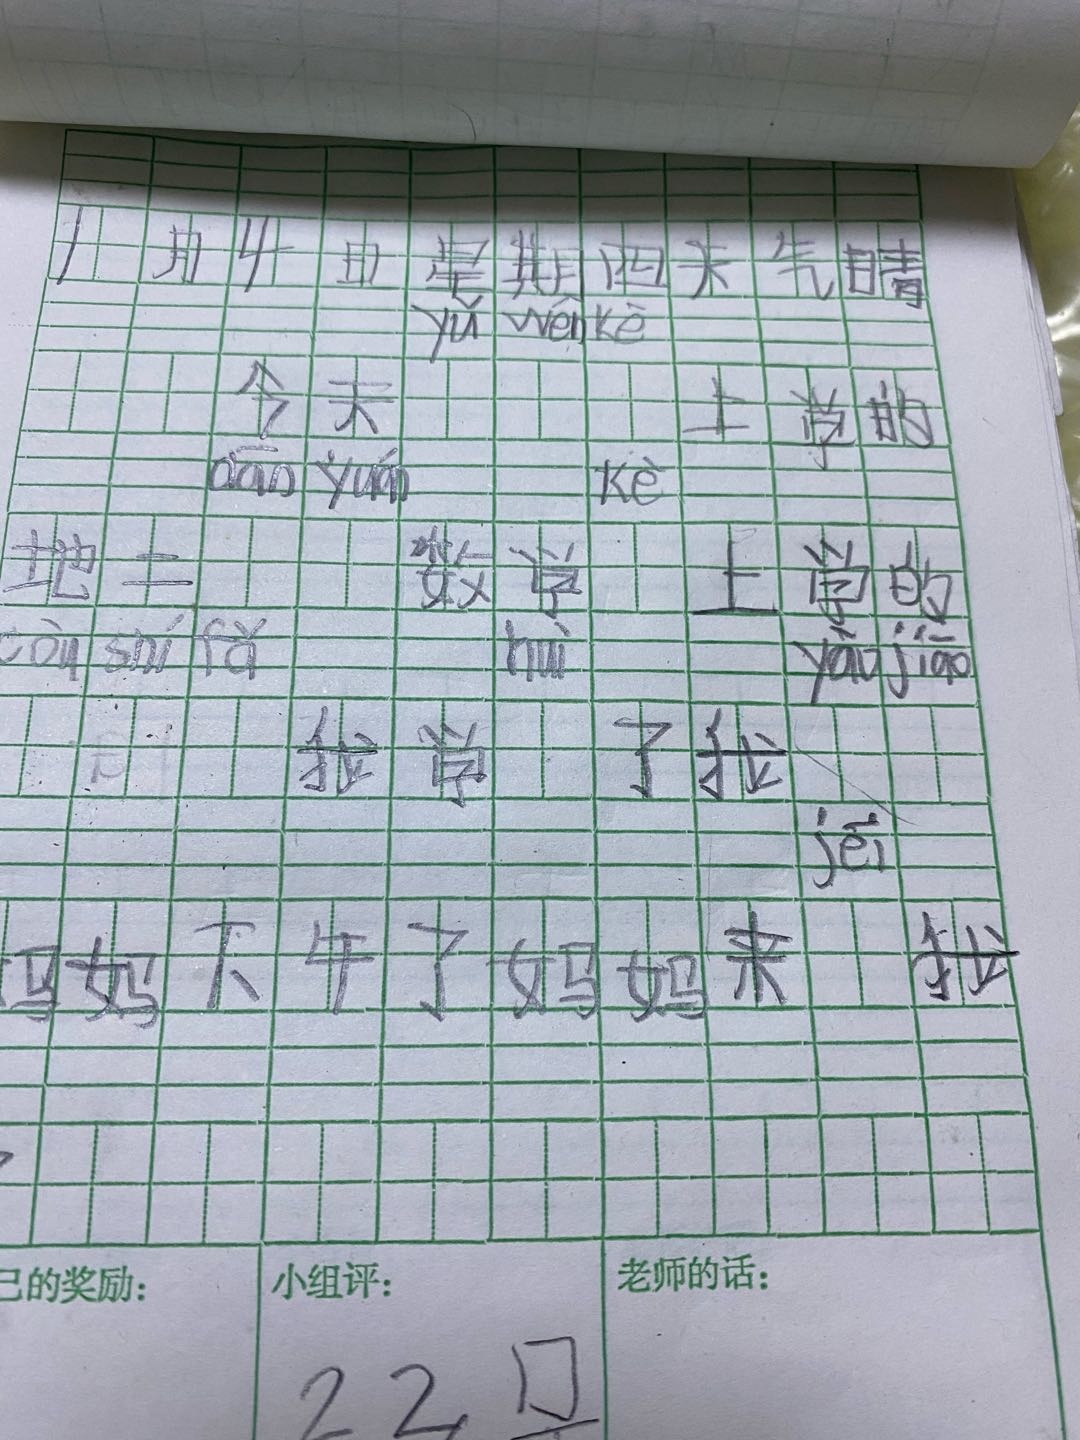 1月4日星期四天气晴
yǔ wén kè
今天 上学的
dān yuán kè
地二 数学 上学的
còu shí fǎ huì yào jiāo
我学 了我
jēi
妈妈下午了妈妈来 我
己的奖励: 小组评: 老师的话:
22